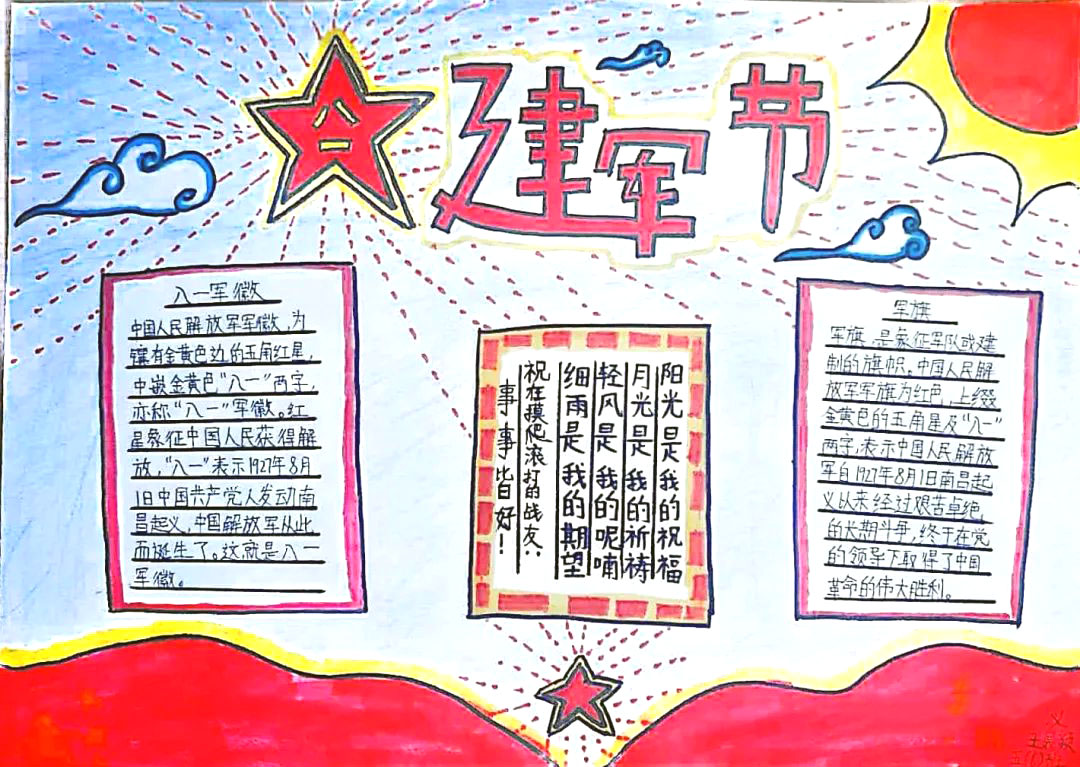 八一
建军节
八一军徽
中国人民解放军军徽,为
镶有金黄色边的五角红星,
中嵌金黄色"八一"两字,
亦称"八一"军徽。红
星象征中国人民获得解
放,"八一"表示1927年8月
1日中国共产党人发动南
昌起义,中国解放军从此
而诞生了。这就是八一
军徽。
阳光是我的祝福
月光是我的祈祷
轻风是我的呢喃
细雨是我的期望
祝在摸爬滚打的战友:
事事皆好!
军旗
军旗,是象征军队或建
制的旗帜。中国人民解
放军军旗为红色,上缀
金黄色的五角星及"八一"
两字,表示中国人民解放
军自1927年8月1日南昌起
义以来经过艰苦卓绝,
的长期斗争,终于在党
的领导下取得了中国
革命的伟大胜利。